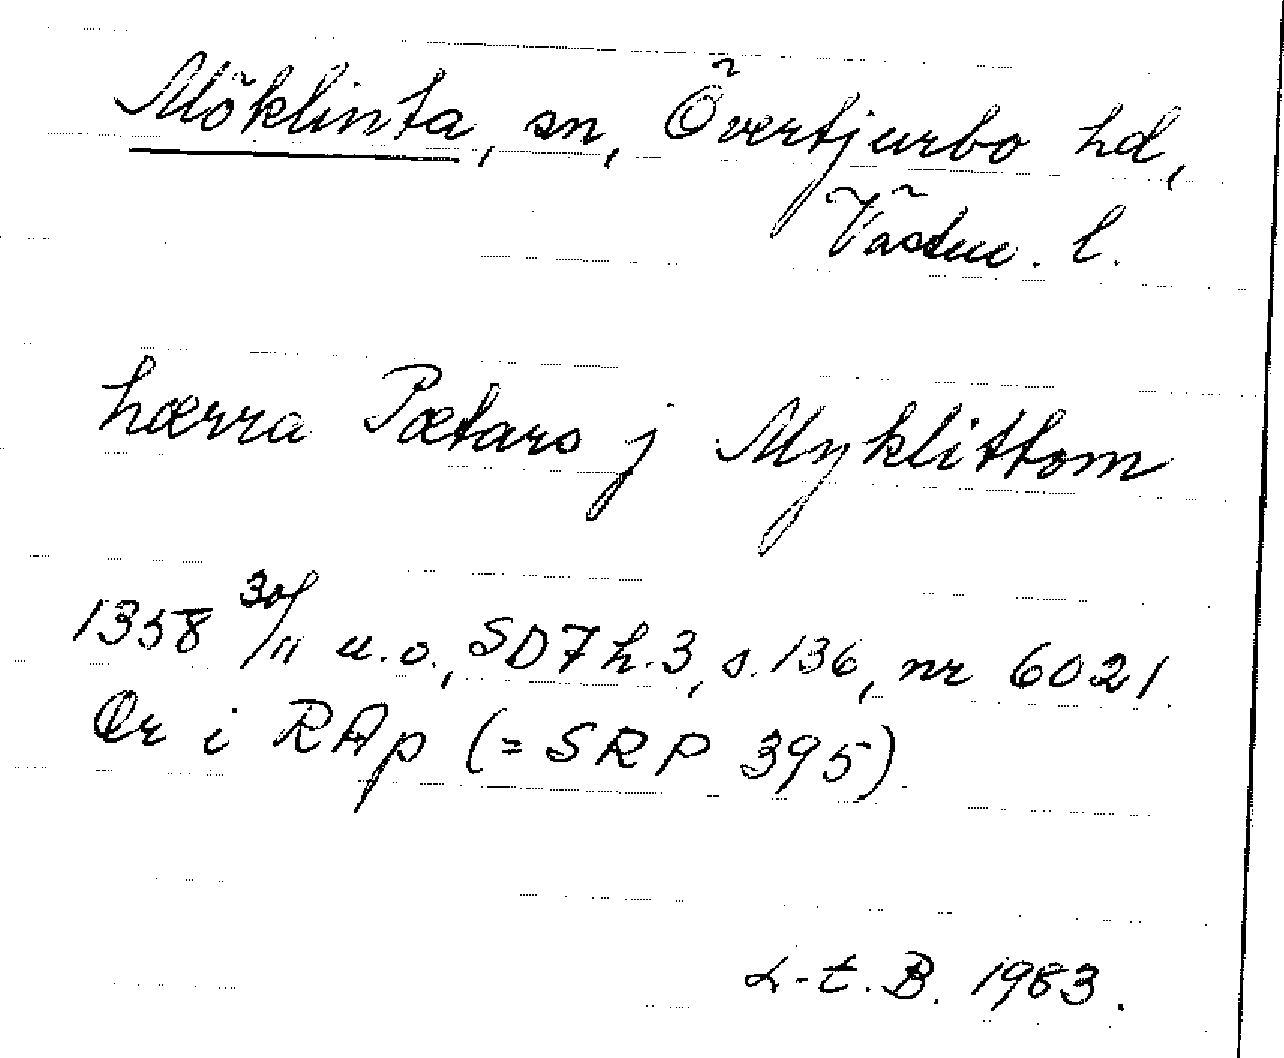 Möklinta, sn, Övertjurbo hd,
Västm. l.
hærra Pætars j Myklittom
1358 30/11 u.o., SD7 h.3, s.136, nr 6021
Or i RAp (= SRP 395).
L-t. B. 1983.